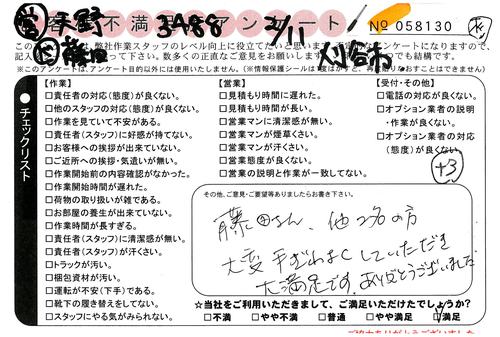 営 平野 3A88 2/11 刈谷市
お客様不満足度アンケート
№ 058130
チェックリスト
【作業】
□責任者の対応(態度)が良くない。
□他のスタッフの対応(態度)が良くない。
□作業を見ていて不安がある。
□責任者(スタッフ)に好感が持てない。
□お客様への挨拶が出来ていない。
□ご近所への挨拶・気遣いが無い。
□作業開始前の内容確認がなかった。
□作業開始時間が遅れた。
□荷物の取り扱いが雑である。
□お部屋の養生が出来ていない。
□作業時間が長すぎる。
□責任者(スタッフ)に清潔感が無い。
□責任者(スタッフ)が汗くさい。
□トラックが汚い。
□梱包資材が汚い。
□運転が不安(下手)である。
□靴下の履き替えをしてない。
□スタッフにやる気がみられない。
【営業】
□見積もり時間に遅れた。
□見積もり時間が長い。
□営業マンに清潔感が無い。
□営業マンが煙草くさい。
□営業マンが汗くさい。
□営業態度が良くない。
□営業の説明と作業が一致してない。
【受付・その他】
□電話の対応が良くない。
□オプション業者の説明
・作業が良くない。
□オプション業者の対応
(態度)が良くない。
+3
その他、ご意見・ご要望等ありましたらお書き下さい。
藤田さん、他2名の方
大変手ぎわよくしていただき
大満足です。ありがとうございました
☆当社をご利用いただきまして、ご満足いただけたでしょうか?
□不満 □やや不満 □普通 □やや満足 □満足
ご協力ありがとうございました